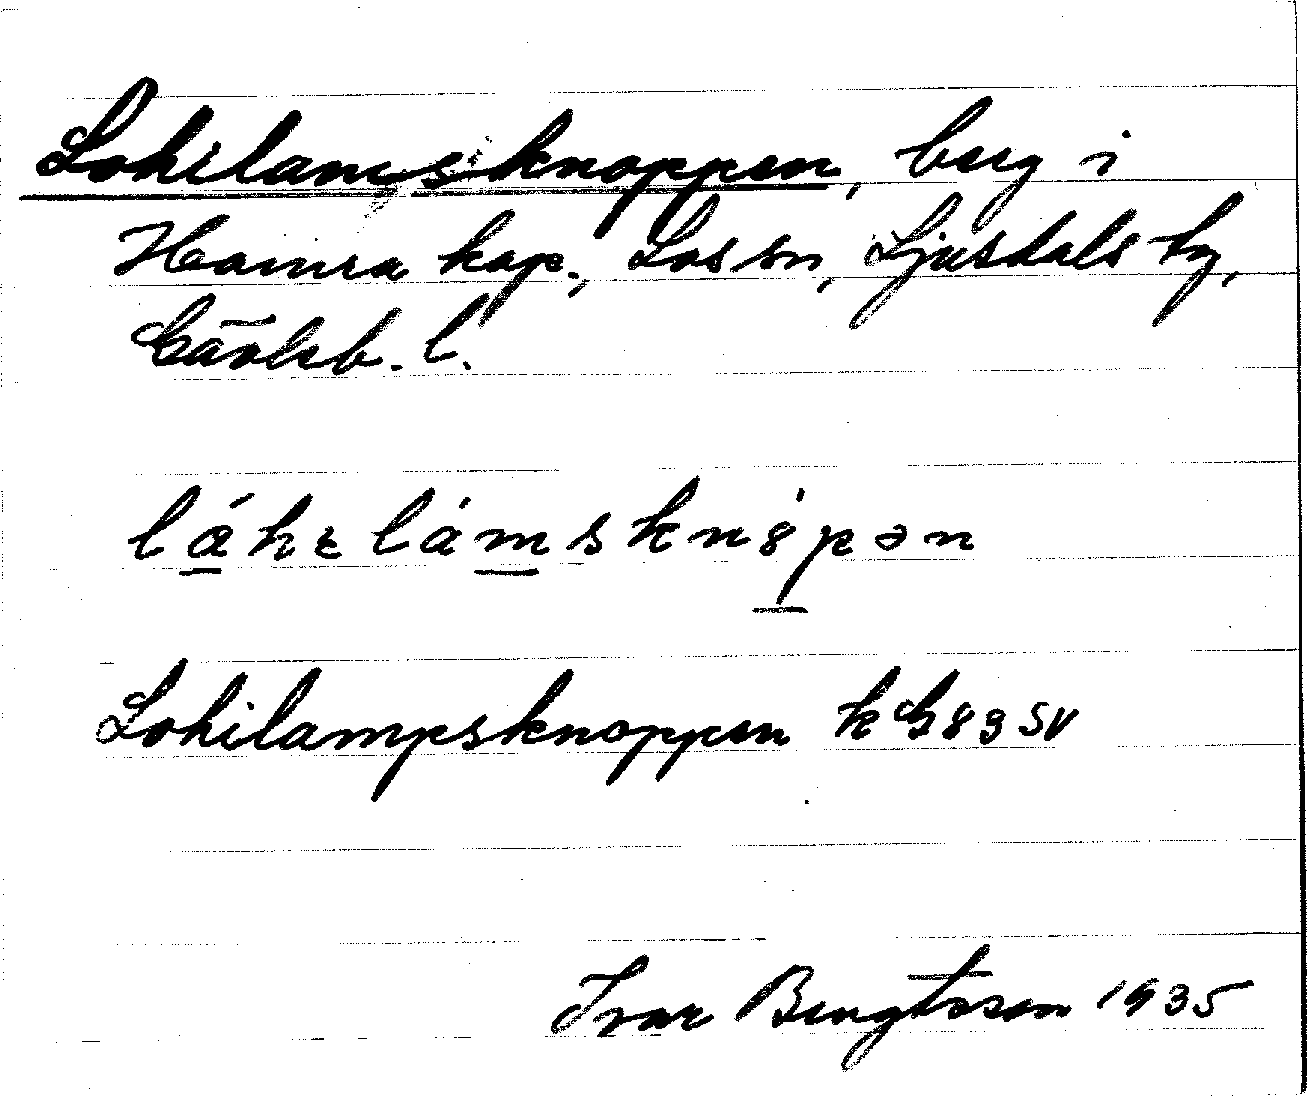 Lohilamsknoppen, berg i
Hamra kap., Los sn, Ljusdals tg,
Gävleb. l.
lá̱hɛlám̱skn8́p̱ən
Lohilampsknoppen k G83 SV
Ivar Bengtsson 1935